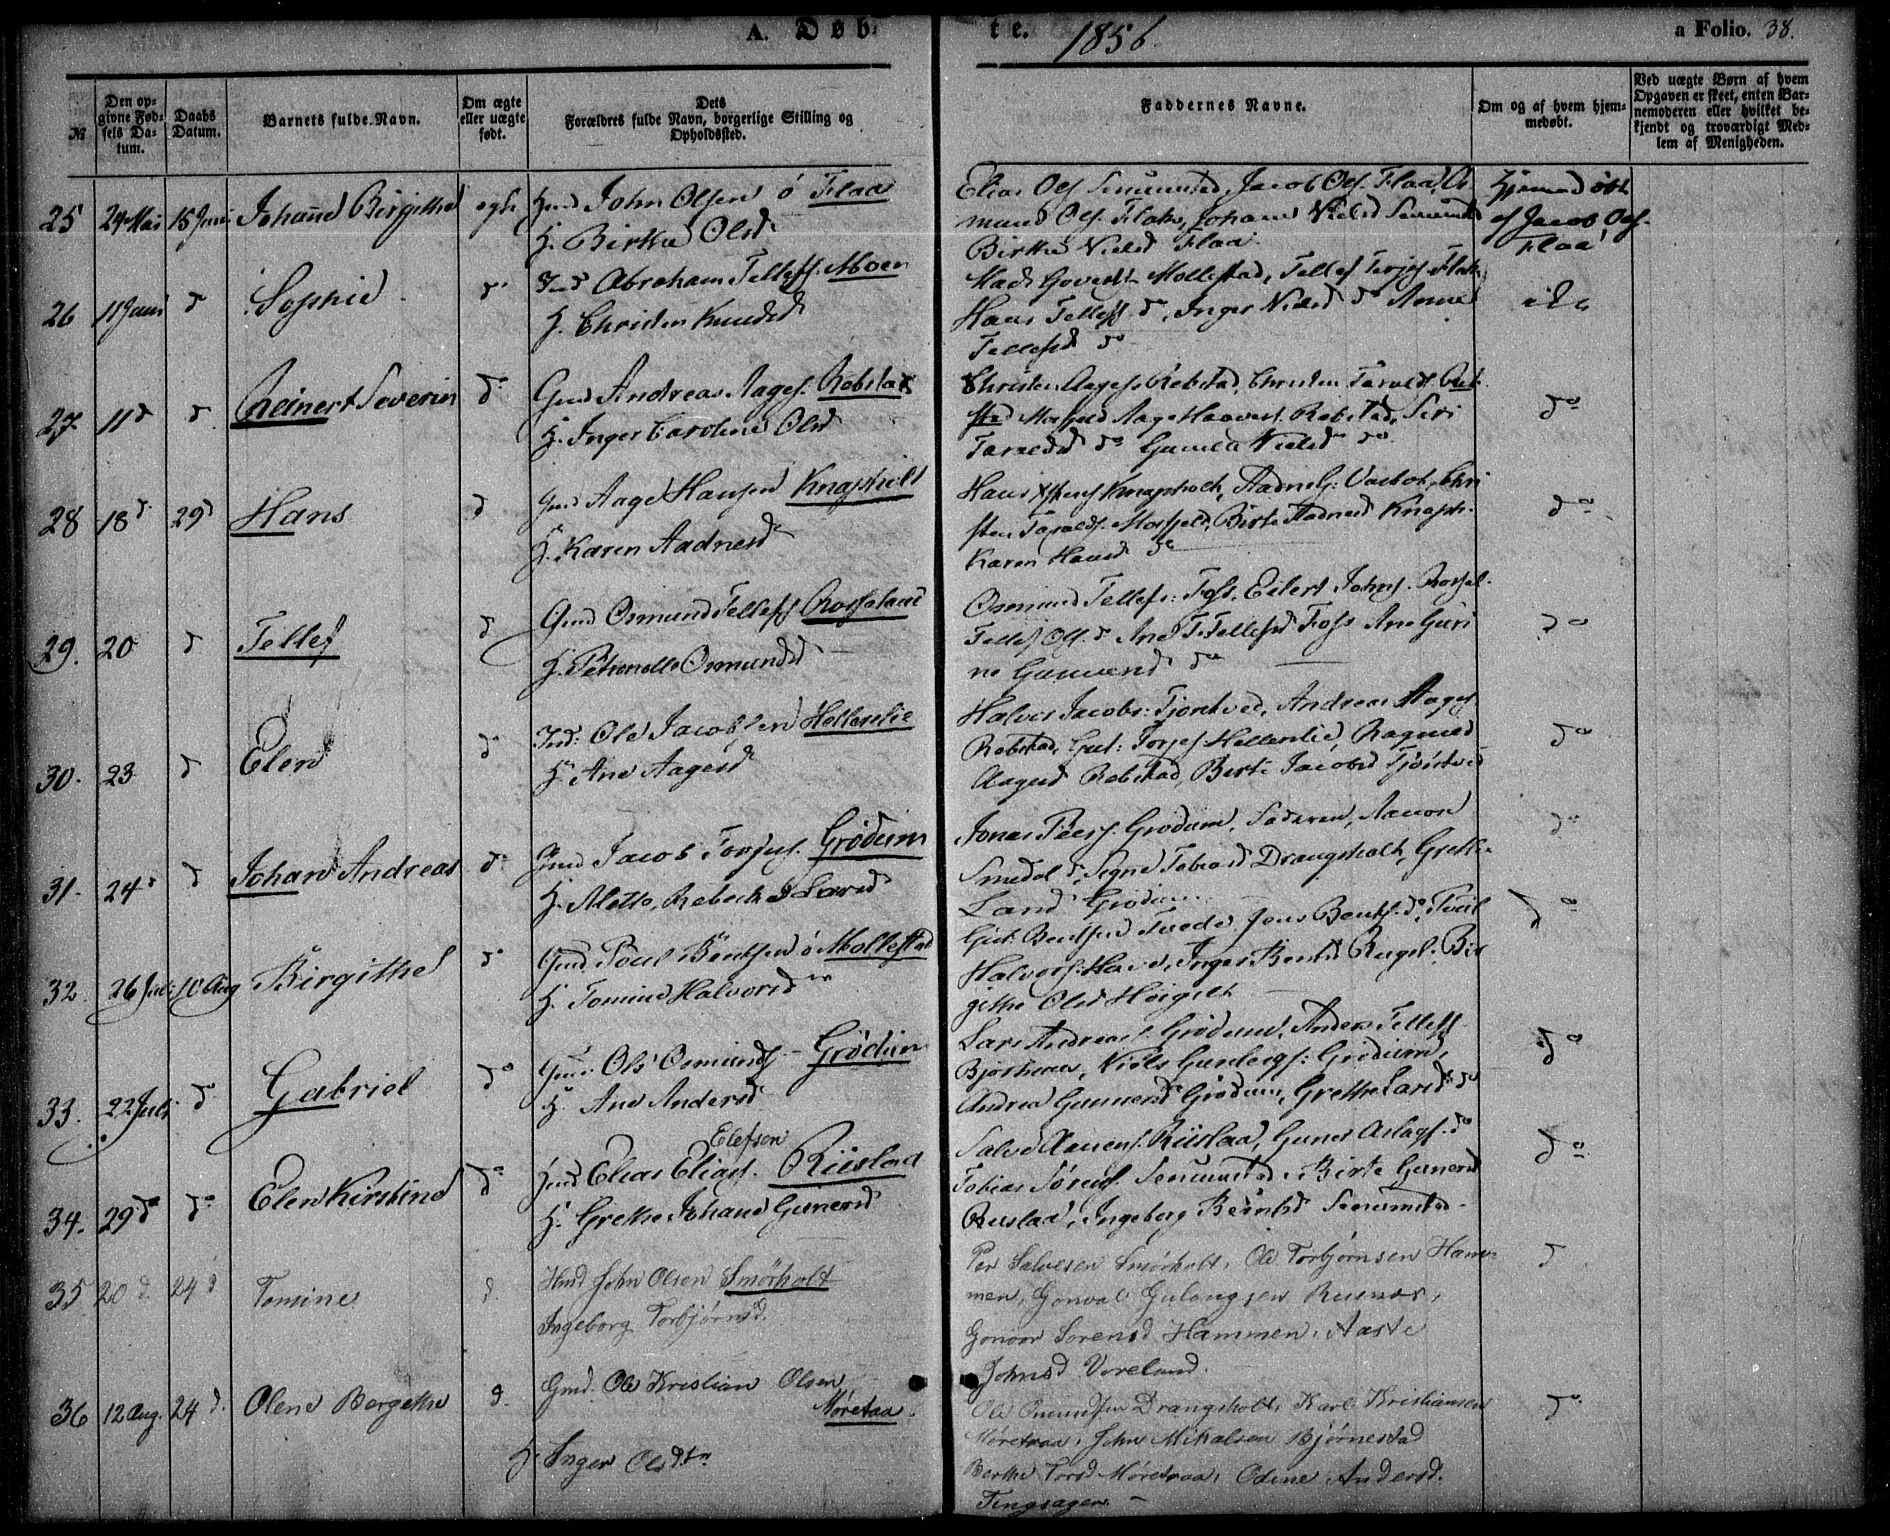 A. Døb-
te. 1856.
a Folio. 38.
№
Den op-
givne Fød-
sels Da-
tum.
Daabs
Datum.
Barnets fulde Navn.
Om ægte
eller uægte
født.
Dets
Forældres fulde Navn, borgerlige Stilling og
Opholdssted.
Faddernes Navne.
Om og af hvem hjem-
medøbt.
Ved uægte Børn af hvem
Opgaven er skeet, enten Bar-
nemoderen eller hvilket be-
kjendt og troværdigt Med-
lem af Menigheden.
25 24 Mai 15 Juni Johanne Birgithe egte John Olsen ø Flaa
H. Birthe Olsd
Elias Ols Senumstad, Jacob Ols. Flaa, Os
mund Ols. Flaa, Johanne Nielsd Senumst
Birthe Nielsd Flaa.
Hjemmedøbt
af Jacob Ols.
Flaa
26 11 Juni d Sophie d Abraham Tellefs. Moen
H. Christen Knudsd
Mads Goverts Mollestad, Tellef Terjes Flak
Hans Tellefs d, Inger Nielsd d Anne
Tellefsd do
ikke
27 11 d d Reinert Severin do Gmd Andreas Aages. Rebstad
H. Inger Caroline Olsd
Christen Aages. Rebstad, Christen Taralds.
Aage Haavors. Rebstad, Siri
Taraldsd do Gunild Nielsd do
do
28 18 d 29 d Hans d Gmd Aage Hansen Knapholt
H. Karen Aadnesd
Hans Knapholt, Chri
sten Taralds. Mosfjeld, Birte Aadnesd Knaph.
Karen Hansd do
do
29. 20 d Tellef d Gmd Osmund Tellefs Rosseland
H. Petronelle Osmundsd
Osmund Tellefs. Foss, Eilert Johns. Rossel.
Tellef Ols. d Ane T. Tellefsd Foss Ane Guri
ne Gunnersd do
do
30. 23 d Elen d Ind: Ole Jacobsen Helleslie
H. Ane Aagesd
Halvor Jacobs: Tjomtved, Andreas Aages
Rebstad, Gut: Torjes Helleslie, Ragnild
Aagesd Rebstad, Birte Jacobsd Tjomtved
do
31. 24 d d Johan Andreas do Gmd Jacob Torjus. Grødum
H. Mette Rebekka Larsd
Jonas Peers. Grødum, Faderen, Aanon
Smedal d, Signe Tobiasd Drangsholt, Grethe
Larsd Grødum
do
32. 26 Juli 10 Aug Birgithe do Gmd Poul Bentsen ø Mollestad
H. Tomine Halvorsd
Gut. Bentsen Tvede Jens Bents. do,
Halvors. Inger Bentsd Bir
githe Olsd Høigilt
do
33. 22 Juli do Gabriel do Gmd: Ole Osmunds. Grødum
H. Ane Andersd
Lars Andreas. Grødum, Anders Tellefs
Niels Gunders: Grødum,
Andrea Gunnersd Grødum, Grethe Larsd do
do
34. 29 do do Elen Kirstine do Elefsen
Gmd Elias Elias. Riislaa
H. Grethe Johanne Gunersd
Salve Aanens. Riislaa, Guner Aslags. do
Tobias Sørens. Senumstad, Birte Gunersd
Riislaa, Ingeborg Berntsd Senumstad.
do
35 20 d. 24 d Tomine d. Hmd John Olsen Smörholt
Ingeborg Torbjørnsd.
Per Salvesen Smörholt, Ole Torbjørnsen Ham-
men, Gonval Gulaugsen Rusnæs,
Gonvor Sorensd Hammen, Aaste
Johnsd Voreland.
d
36 12 Aug. 24 d. Olene Bergithe d. Gmd. Ole Kristian Olsen
Møretraa.
H Inger Olsdtr
Ole Omundsen Drangsholt, Karl Kristiansen
Møretraa, John Mikalsen Bjørnestad
Berthe Torsd Møretraa, Odine Andersd.
Tingsager. -
do